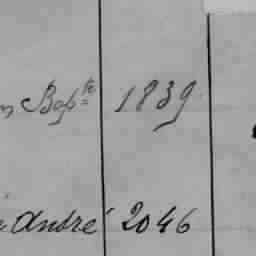 Bapte 1839
André 2046